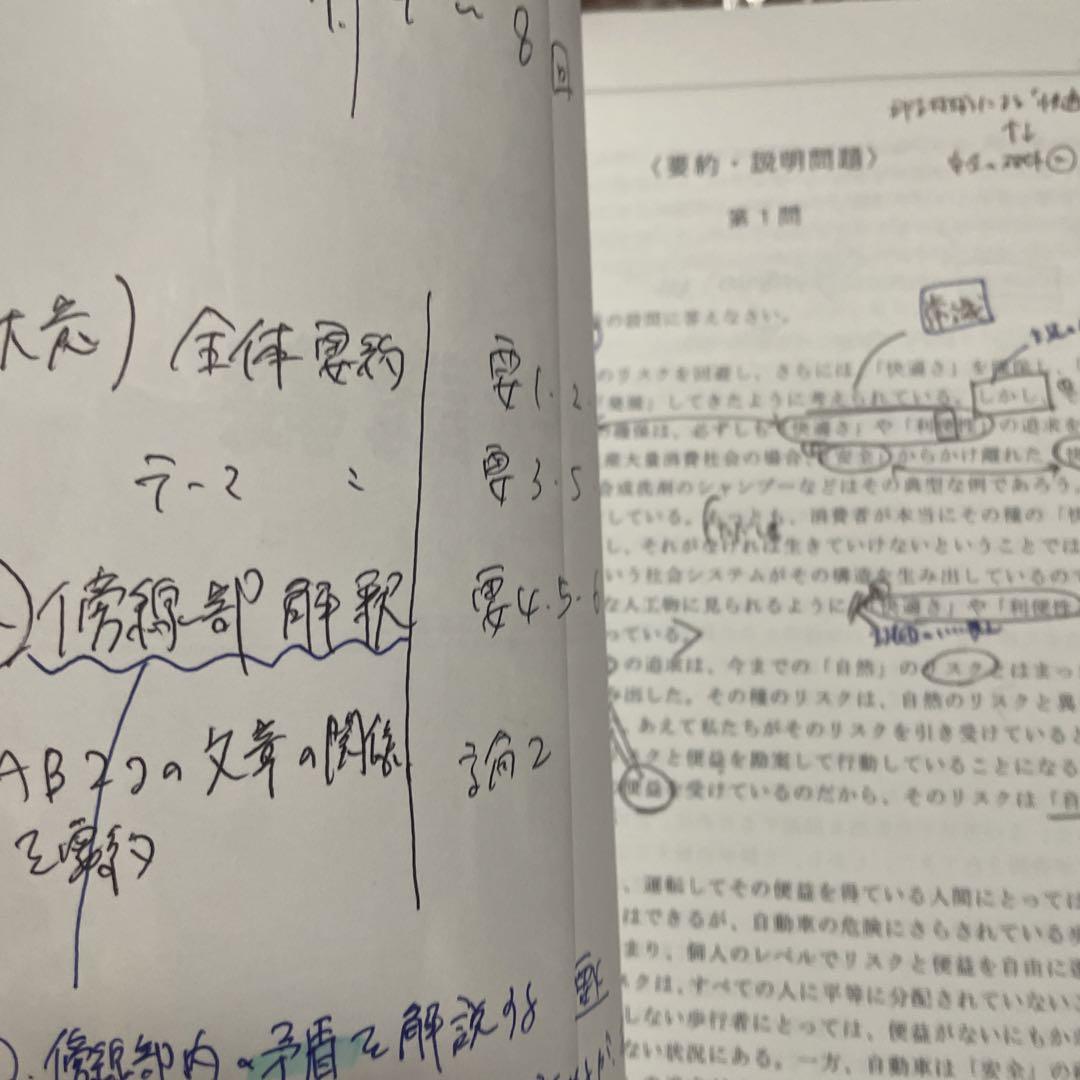 8回
全体要約 要1.2.
テーマ 〃 要3.5
傍線部解釈 要4.5.6
AB2つの文章の関係 論2
を要約
傍線部内の矛盾を解説する
〈要約・説明問題〉
第1問
常識
の設問に答えなさい。
のリスクを回避し、さらには、「快適さ」を
発展」してきたように考えられている。しかし、そ
の確保は、必ずしも「快適さ」や「利便性」の追求を
産大量消費社会の場合、「安全」からかけ離れた「快
合成洗剤のシャンプーなどはその典型な例であろう。
している。もっとも、消費者が本当にその種の「快
し、それがなければ生きていけないということでは
いう社会システムがその構造を生み出しているので
な人工物に見られるように、「快適さ」や「利便性
っている。
の追求は、今までの「自然」のリスクとはまっ
み出した。その種のリスクは、自然のリスクと異
、あえて私たちがそのリスクを引き受けていると
スクと便益を勘案して行動していることになる
便益を受けているのだから、そのリスクは「自
、運転してその便益を得ている人間にとっては
はできるが、自動車の危険にさらされている歩
まり、個人のレベルでリスクと便益を自由に選
スクは、すべての人に平等に分配されていないこ
しない歩行者にとっては、便益がないにもか
ない状況にある。一方、自動車は「安全」の